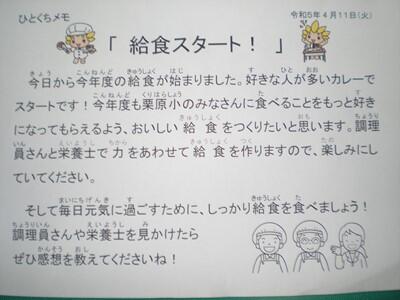 ひとくちメモ
令和5年4月11日(火)
「 給食スタート! 」
今日から今年度の給食が始まりました。好きな人が多いカレーで
スタートです!今年度も栗原小のみなさんに食べることをもっと好き
になってもらえるよう、おいしい給食をつくりたいと思います。調理
員さんと栄養士で力をあわせて給食を作りますので、楽しみにし
ていてください。
そして毎日元気に過ごすために、しっかり給食を食べましょう!
調理員さんや栄養士を見かけたら
ぜひ感想を教えてくださいね!